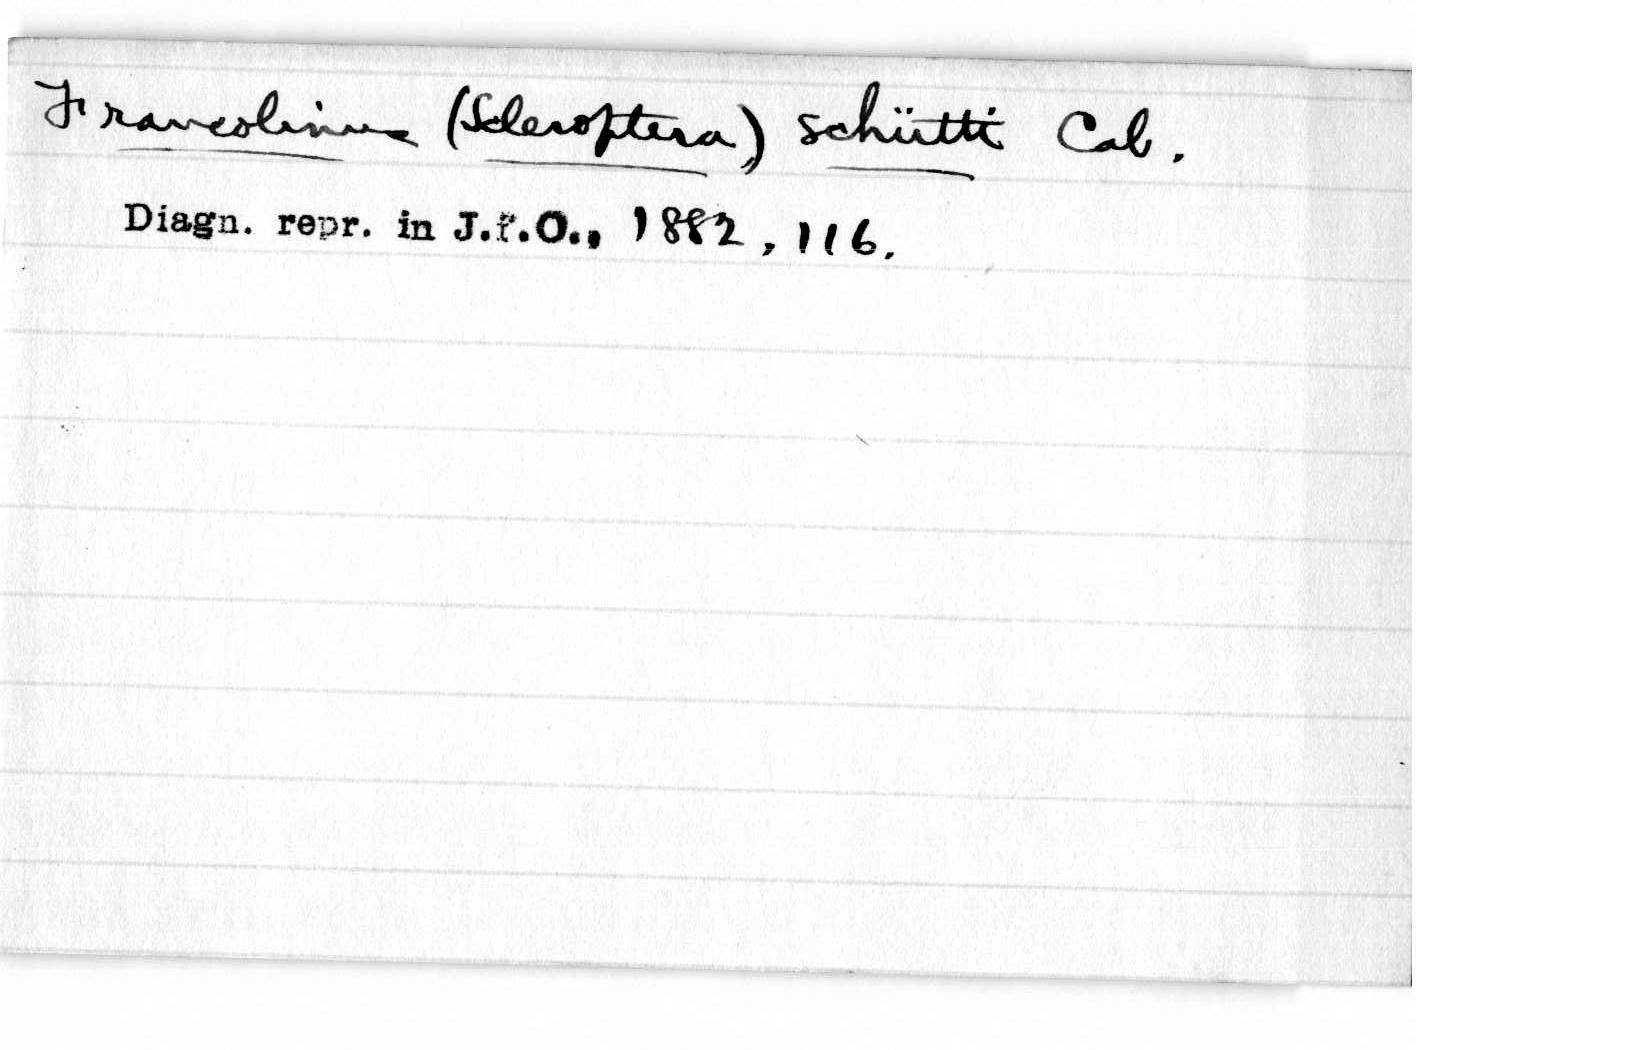 Francolinus (Scleroptera) schütti Cab.
Diagn. repr. in J.f.O., 1882, 116.